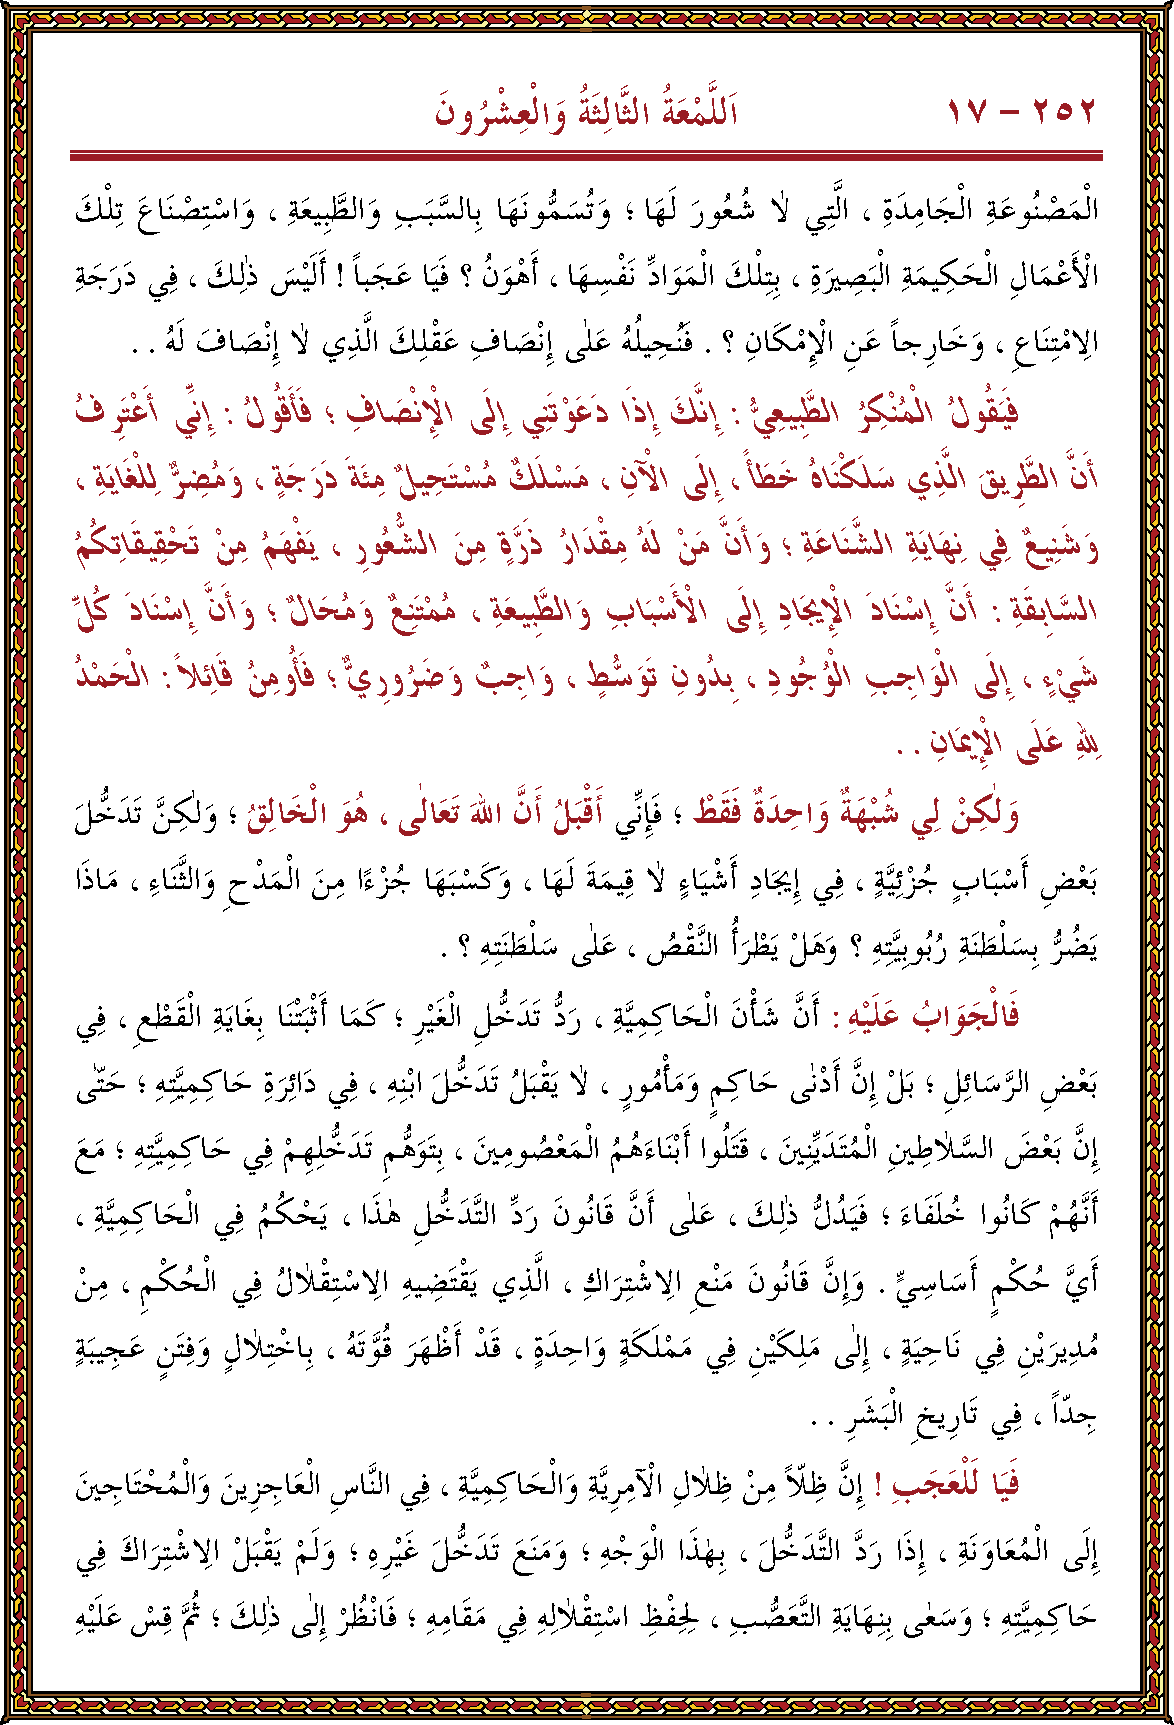 ٢٥٢ – ١٧ اَللَّمْعَةُ الثَّالِثَةُ وَالْعِشْرُونَ
الْمَصْنُوعَةِ الْجَامِدَةِ ، الَّتِي لَا شُعُورَ لَهَا ؛ وَتُسَمُّونَهَا بِالسَّبَبِ وَالطَّبِيعَةِ ، وَاسْتِصْنَاعَ تِلْكَ
الْأَعْمَالِ الْحَكِيمَةِ الْبَصِيرَةِ ، بِتِلْكَ الْمَوَادِّ نَفْسِهَا ، أَهْوَنُ ؟ فَيَا عَجَباً ! أَلَيْسَ ذٰلِكَ ، فِي دَرَجَةِ
الِامْتِنَاعِ ، وَخَارِجاً عَنِ الْإِمْكَانِ ؟ . فَنُحِيلُهُ عَلٰى إِنْصَافِ عَقْلِكَ الَّذِي لَا إِنْصَافَ لَهُ . .
فَيَقُولُ الْمُنْكِرُ الطَّبِيعِيُّ : إِنَّكَ إِذَا دَعَوْتَنِي إِلَى الْإِنْصَافِ ؛ فَأَقُولُ : إِنِّي أَعْتَرِفُ
أَنَّ الطَّرِيقَ الَّذِي سَلَكْنَاهُ خَطَأً ، إِلَى الْآنِ ، مَسْلَكٌ مُسْتَحِيلٌ مِئَةَ دَرَجَةٍ ، وَمُضِرٌّ لِلْغَايَةِ ،
وَشَنِيعٌ فِي نِهَايَةِ الشَّنَاعَةِ ؛ وَأَنَّ مَنْ لَهُ مِقْدَارُ ذَرَّةٍ مِنَ الشُّعُورِ ، يَفْهَمُ مِنْ تَحْقِيقَاتِكُمُ
السَّابِقَةِ : أَنَّ إِسْنَادَ الْإِيجَادِ إِلَى الْأَسْبَابِ وَالطَّبِيعَةِ ، مُمْتَنِعٌ وَمُحَالٌ ؛ وَأَنَّ إِسْنَادَ كُلِّ
شَيْءٍ ، إِلَى الْوَاجِبِ الْوُجُودِ ، بِدُونِ تَوَسُّطٍ ، وَاجِبٌ وَضَرُورِيٌّ ؛ فَأُومِنُ قَائِلاً : الْحَمْدُ
لِلّٰهِ عَلَى الْإِيمَانِ . .
وَلٰكِنْ لِي شُبْهَةٌ وَاحِدَةٌ فَقَطْ ؛ فَإِنِّي أَقْبَلُ أَنَّ اللهَ تَعَالٰى ، هُوَ الْخَالِقُ ؛ وَلٰكِنَّ تَدَخُّلَ
بَعْضِ أَسْبَابٍ جُزْئِيَّةٍ ، فِي إِيجَادِ أَشْيَاءٍ لَا قِيمَةَ لَهَا ، وَكَسْبَهَا جُزْءًا مِنَ الْمَدْحِ وَالثَّنَاءِ ، مَاذَا
يَضُرُّ بِسَلْطَنَةِ رُبُوبِيَّتِهِ ؟ وَهَلْ يَطْرَأُ النَّقْصُ ، عَلٰى سَلْطَنَتِهِ ؟ .
فَالْجَوَابُ عَلَيْهِ : أَنَّ شَأْنَ الْحَاكِمِيَّةِ ، رَدُّ تَدَخُّلِ الْغَيْرِ ؛ كَمَا أَثْبَتْنَا بِغَايَةِ الْقَطْعِ ، فِي
بَعْضِ الرَّسَائِلِ ؛ بَلْ إِنَّ أَدْنٰى حَاكِمٍ وَمَأْمُورٍ ، لَا يَقْبَلُ تَدَخُّلَ ابْنِهِ ، فِي دَائِرَةِ حَاكِمِيَّتِهِ ؛ حَتّٰى
إِنَّ بَعْضَ السَّلَاطِينِ الْمُتَدَيِّنِينَ ، قَتَلُوا أَبْنَاءَهُمُ الْمَعْصُومِينَ ، بِتَوَهُّمِ تَدَخُّلِهِمْ فِي حَاكِمِيَّتِهِ ؛ مَعَ
أَنَّهُمْ كَانُوا خُلَفَاءَ ؛ فَيَدُلُّ ذٰلِكَ ، عَلٰى أَنَّ قَانُونَ رَدِّ التَّدَخُّلِ هٰذَا ، يَحْكُمُ فِي الْحَاكِمِيَّةِ ،
أَيَّ حُكْمٍ أَسَاسِيٍّ . وَإِنَّ قَانُونَ مَنْعِ الِاشْتِرَاكِ ، الَّذِي يَقْتَضِيهِ الِاسْتِقْلَالُ فِي الْحُكْمِ ، مِنْ
مُدِيرَيْنِ فِي نَاحِيَةٍ ، إِلٰى مَلِكَيْنِ فِي مَمْلَكَةٍ وَاحِدَةٍ ، قَدْ أَظْهَرَ قُوَّتَهُ ، بِاخْتِلَالٍ وَفِتَنٍ عَجِيبَةٍ
جِدّاً ، فِي تَارِيخِ الْبَشَرِ . .
فَيَا لَلْعَجَبِ ! إِنَّ ظِلّاً مِنْ ظِلَالِ الْآمِرِيَّةِ وَالْحَاكِمِيَّةِ ، فِي النَّاسِ الْعَاجِزِينَ وَالْمُحْتَاجِينَ
إِلَى الْمُعَاوَنَةِ ، إِذَا رَدَّ التَّدَخُّلَ ، بِهٰذَا الْوَجْهِ ؛ وَمَنَعَ تَدَخُّلَ غَيْرِهِ ؛ وَلَمْ يَقْبَلْ الِاشْتِرَاكَ فِي
حَاكِمِيَّتِهِ ؛ وَسَعٰى بِنِهَايَةِ التَّعَصُّبِ ، لِحِفْظِ اسْتِقْلَالِهِ فِي مَقَامِهِ ؛ فَانْظُرْ إِلٰى ذٰلِكَ ؛ ثُمَّ قِسْ عَلَيْهِ